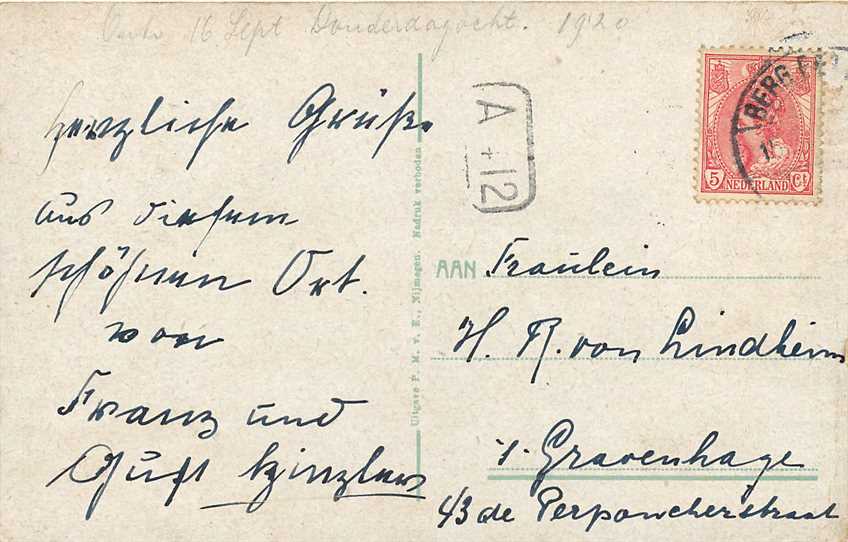 16 Sept Donderdagocht. 1920
Herzliche Grüße
aus diesem
schönen Ort.
von
Franz und
Gust Kinzler
Uitgave P. M. v. E., Nijmegen. Nadruk verboden
A + 12
BERG
5 NEDERLAND Ct
AAN Fraulein
H. R. von Lindheim
's Gravenhage
43 de Perponcherstraat